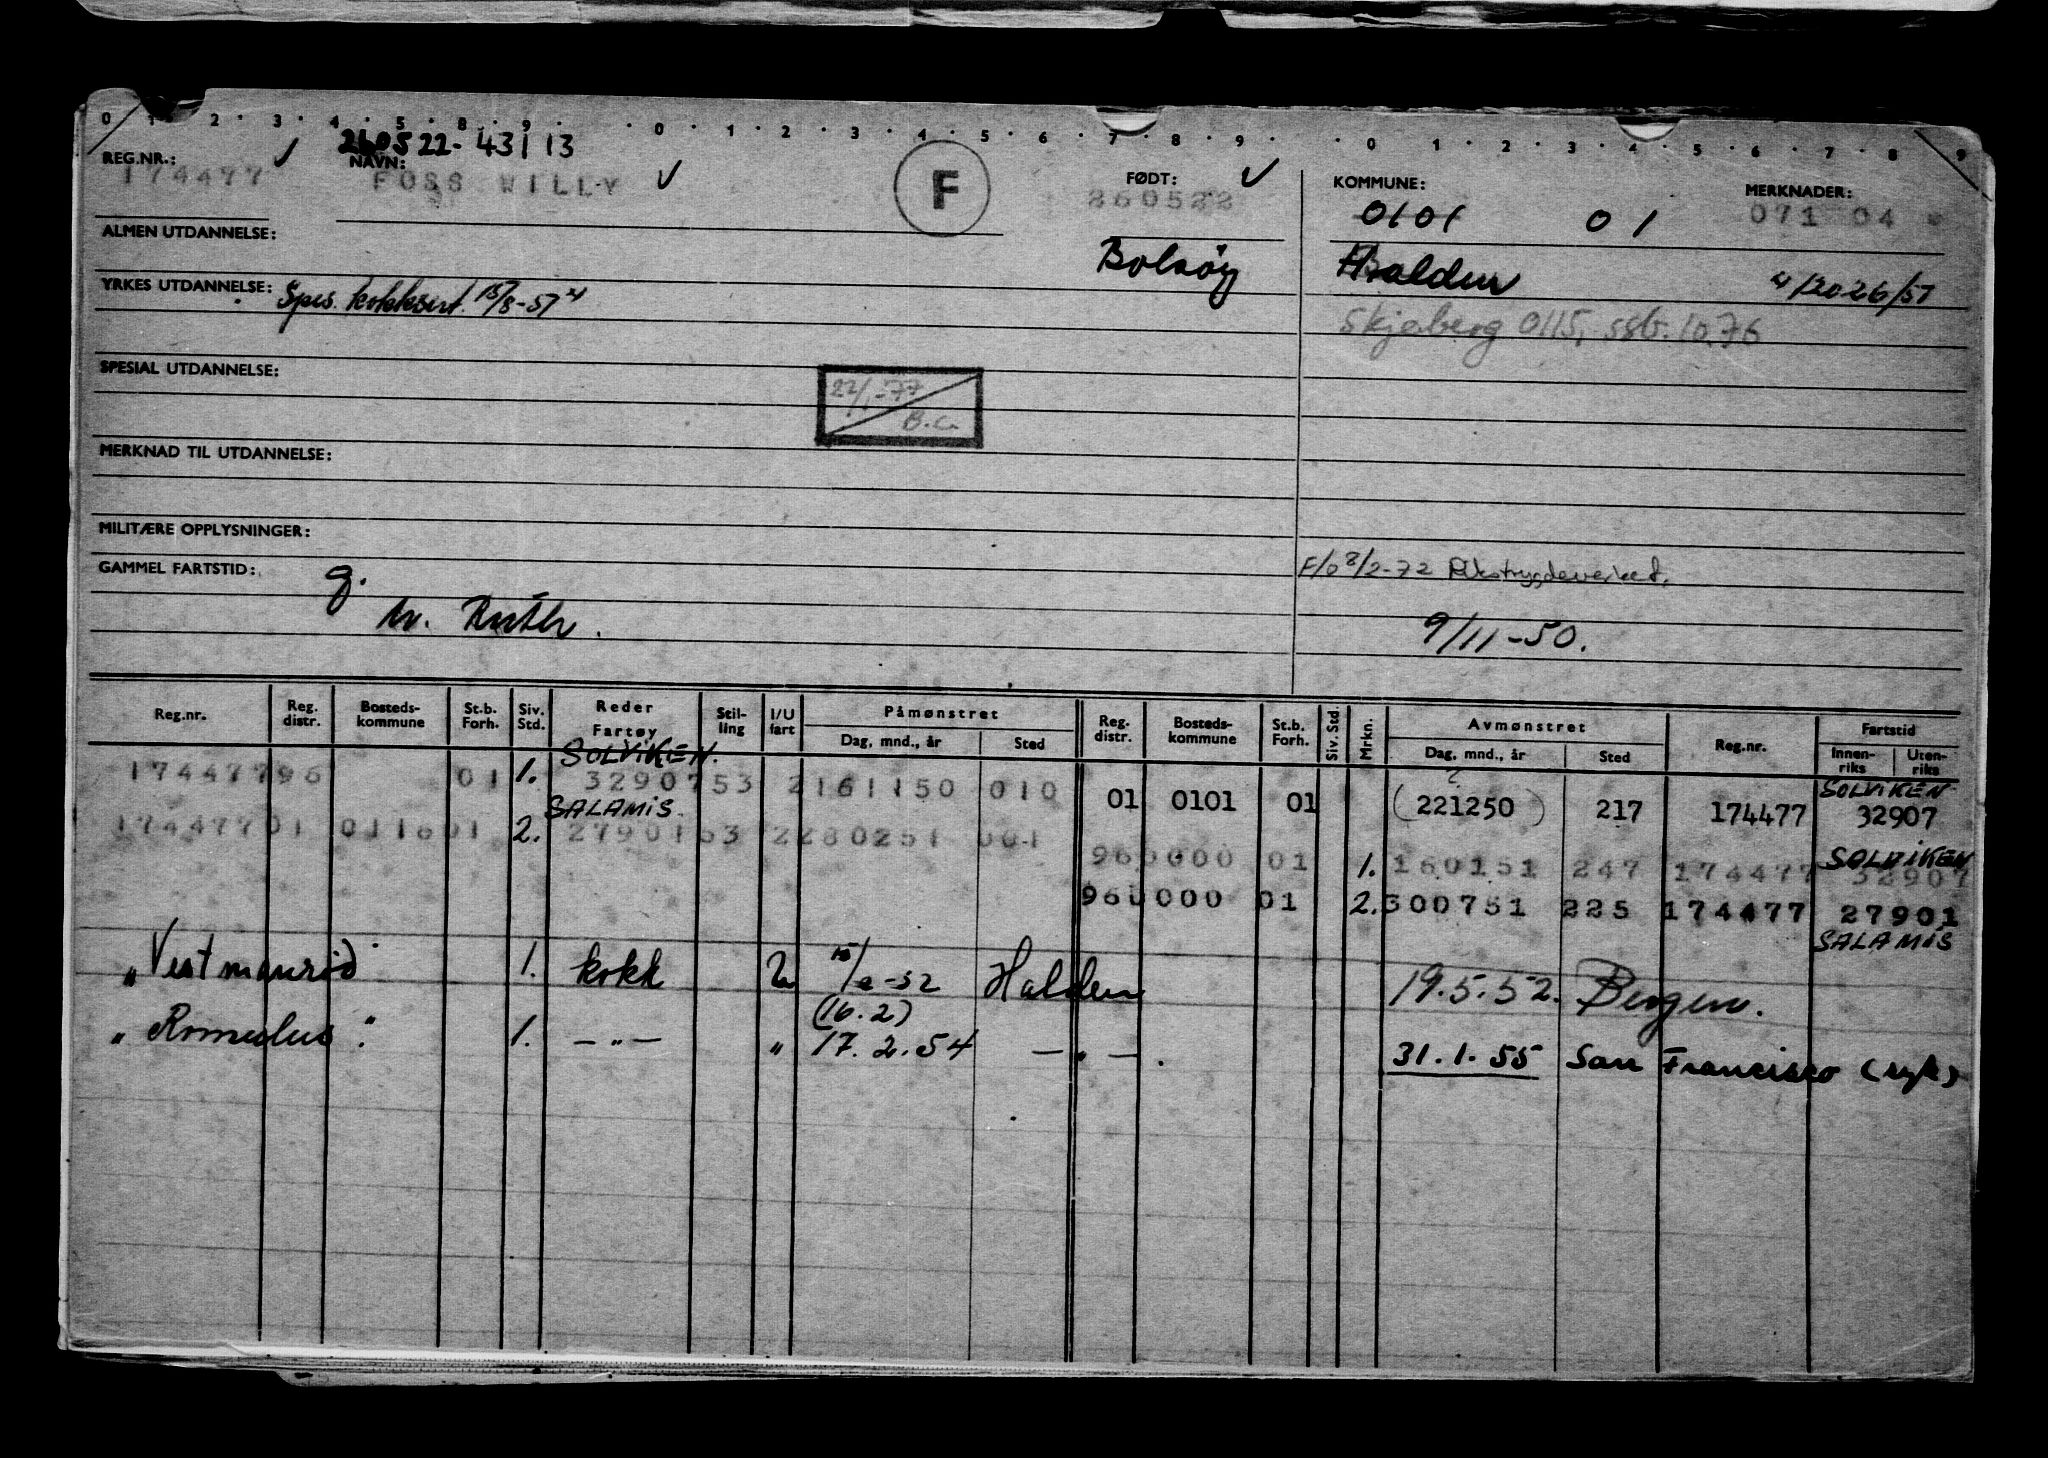 0 1 2 3 4 5 8 9 0 1 2 3 4 5 6 7 8 9 0 1 2 3 4 5 6 7 8 9
260522-43113
REG.NR.: 174477 NAVN: FOSS WILLY F FØDT: 260522 KOMMUNE: 0101 01 MERKNADER: 071 04
ALMEN UTDANNELSE: Bolsöy Halden
YRKES UTDANNELSE: Spes. kokksert. 15/8-57 4/2026/57
Skjeberg 0115, ssb. 10.76
SPESIAL UTDANNELSE: 22/1-77 B.C.
MERKNAD TIL UTDANNELSE:
MILITÆRE OPPLYSNINGER:
GAMMEL FARTSTID: g. F/o 8/2-72 Rikstrygdeverket.
m. Ruth. 9/11-50.
Reg.nr. Reg. distr. Bosteds- kommune St.b. Forh. Siv. Std. Reder Fartøy Stil- ling I/U fart Påmønstret Dag, mnd., år Sted Reg. distr. Bosteds- kommune St.b. Forh. Siv. Std. Mrkn. Avmønstret Dag, mnd., år Sted Reg.nr. Fartstid Innen- riks Uten- riks
SOLVIKEN.
17447796 01 1. 3290753 2161150 010
SOLVIKEN
01 0101 01 (221250) ? 217 174477 32907
SALAMIS.
17447701 011601 2. 2790153 2280251 001
SOLVIKEN
960000 01 1. 160151 247 174477 32907
960000 01 2. 300751 225 174477 27901
SALAMIS
"Vestmanrød" 1. kokk U 15/2-52 Halden 19.5.52. Bergen.
(16.2)
"Romulus". 1. -"- " 17.2.54 -"-. 31.1.55 San Francisco (syk)